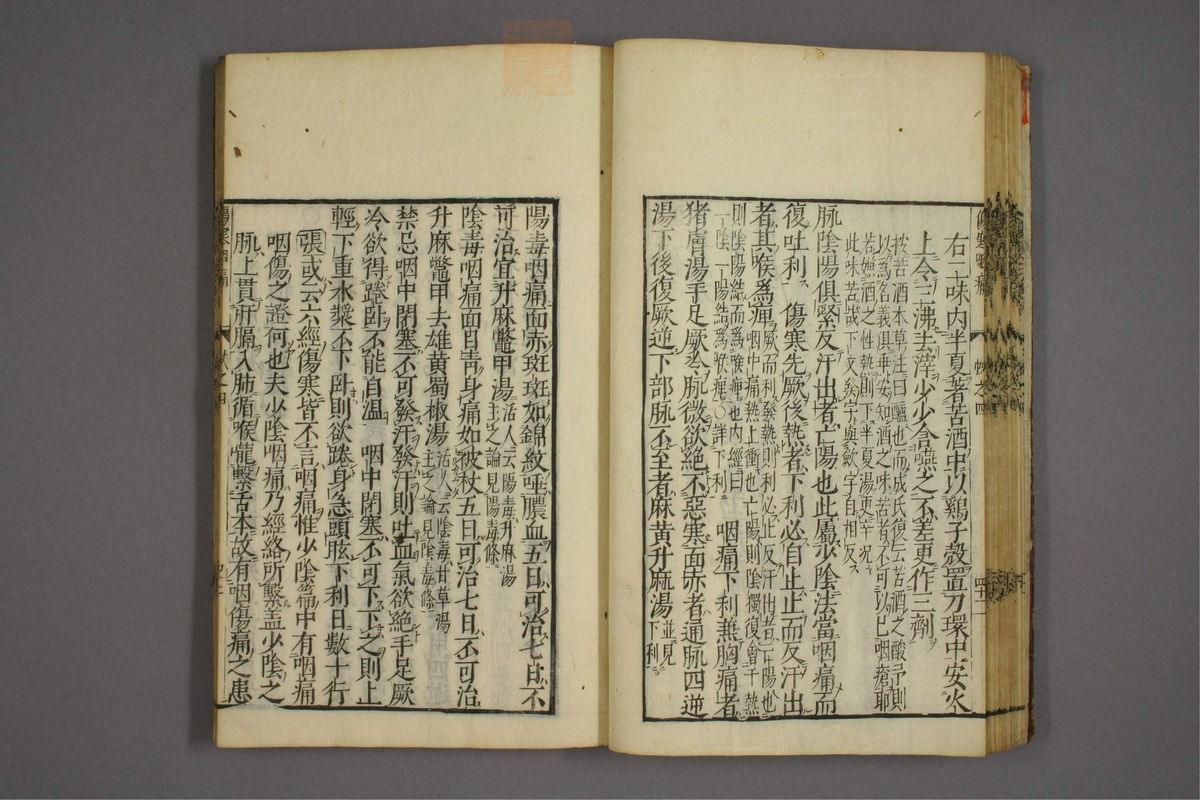 右二味内半夏著苦酒中以鷄子殼置刀環中安火
上令三沸去滓少少含嚥之不差更作三劑
按苦酒本草注曰醯也而成氏復云苦酒之酸予則
以爲名義俱乖安知酒之味苦者不可以已咽瘡耶
若嫌酒之性熱則下半夏湯更辛況
此味苦誠下文
脉陰陽俱緊反汗出者亡陽也此屬少陰法當咽痛而
復吐利 傷寒先厥後熱者下利必自止止而反汗出
者其喉爲痺 厥而利發熱則利必止反汗出者亡陽也
咽中痛熱上衝也亡陽則陰獨復會于熱
則陰陽結而爲喉痺也内經曰
一陰一陽結爲喉痺○詳下利 咽痛下利兼胸痛者
猪膚湯手足厥冷脉微欲絶不惡寒面赤者通脉四逆
湯下後復厥逆下部脉不至者麻黄升麻湯 並見下利
陽毒咽痛面赤斑斑如錦紋唾膿血五日可治七日不
可治宜升麻鼈甲湯 活人云陽毒升麻湯
主之論見陽毒條
陰毒咽痛面目青身痛如被杖五日可治七日不可治
升麻鼈甲去雄黄蜀椒湯 活人云陰毒甘草湯
主之論見陰毒條
禁忌咽中閉塞不可發汗發汗則吐血氣欲絶手足厥
冷欲得踡卧不能自温 咽中閉塞不可下下之則上
輕下重水漿不下卧則欲踡身急頭眩下利日數十行
張或云六經傷寒皆不言咽痛惟少陰篇中有咽痛
咽傷之證何也夫少陰咽痛乃經絡所繫盖少陰之
脉上貫肝膈入肺循喉嚨繫舌本故有咽傷痛之患